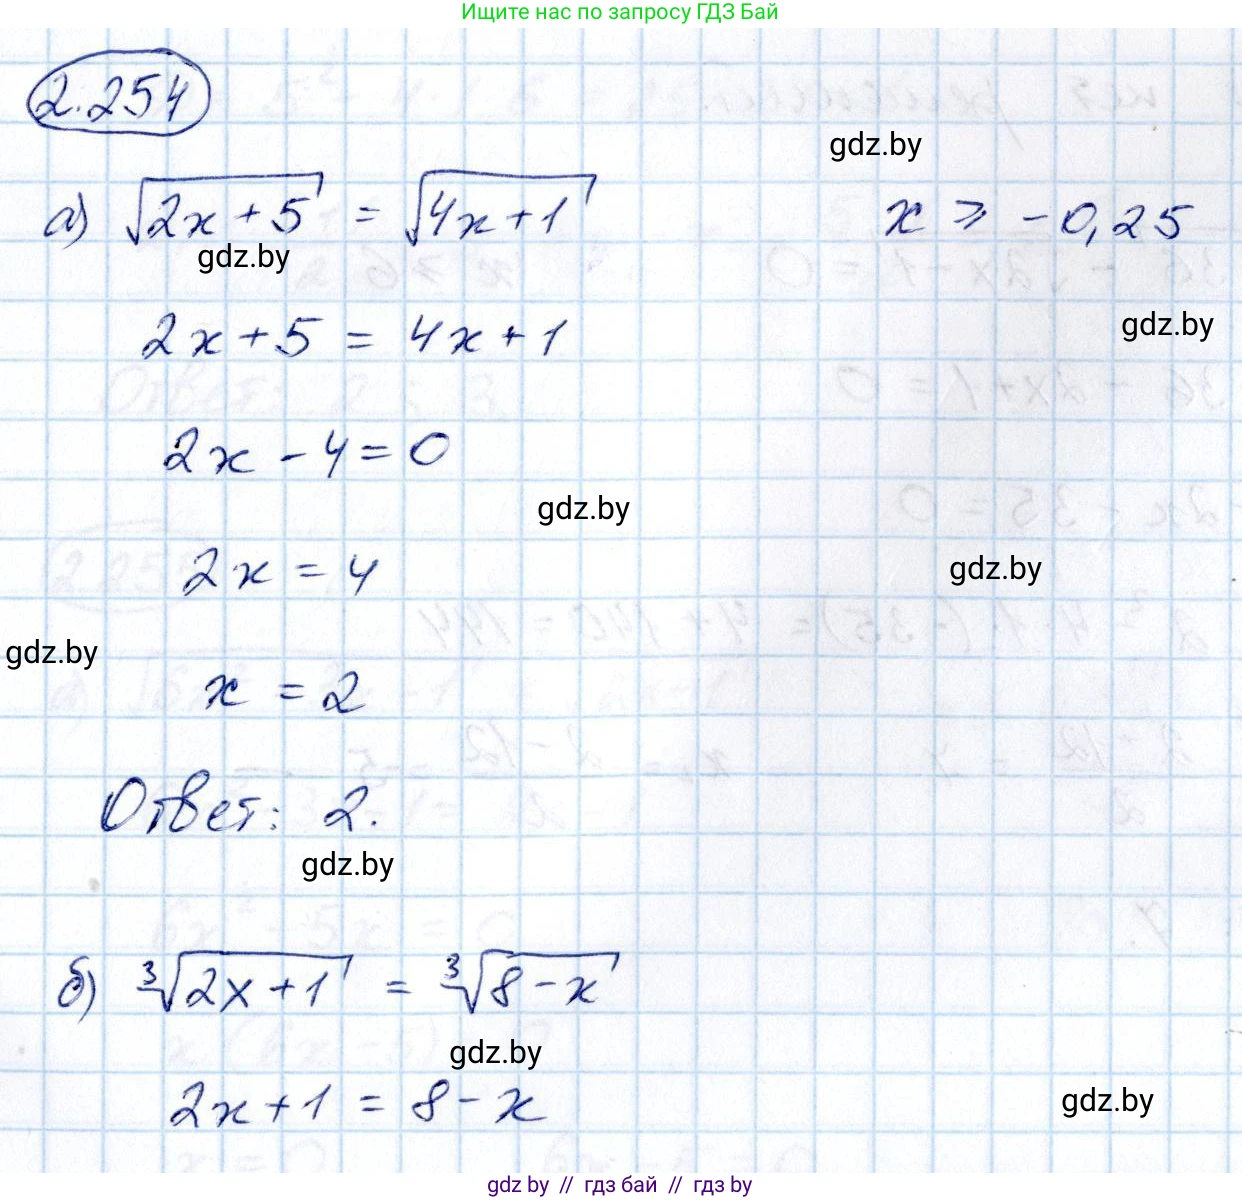 Ищите нас по запросу ГДЗ Бай
2.254
gdz.by
а) √(2x+5) = √(4x+1)    x ⩾ -0,25
gdz.by
2x+5 = 4x+1
gdz.by
2x - 4 = 0
gdz.by
2x = 4
gdz.by
gdz.by
x = 2
Ответ: 2.
gdz.by
б) ∛(2x+1) = ∛(8-x)
gdz.by
2x+1 = 8-x
gdz.by
gdz by // гдз бай // гдз by